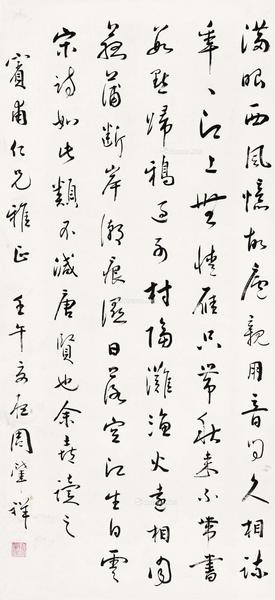 滿眼西風憶故廬親朋音問久相疎
年年江上無情雁只帶秋來不帶書
數點歸鴉過別村隔灘漁火遠相聞
菰蒲斷岸潮痕濕日落空江生白雲
宋詩如此類不減唐賢也余喜讀之
賓甫仁兄雅正 壬午 周肇祥